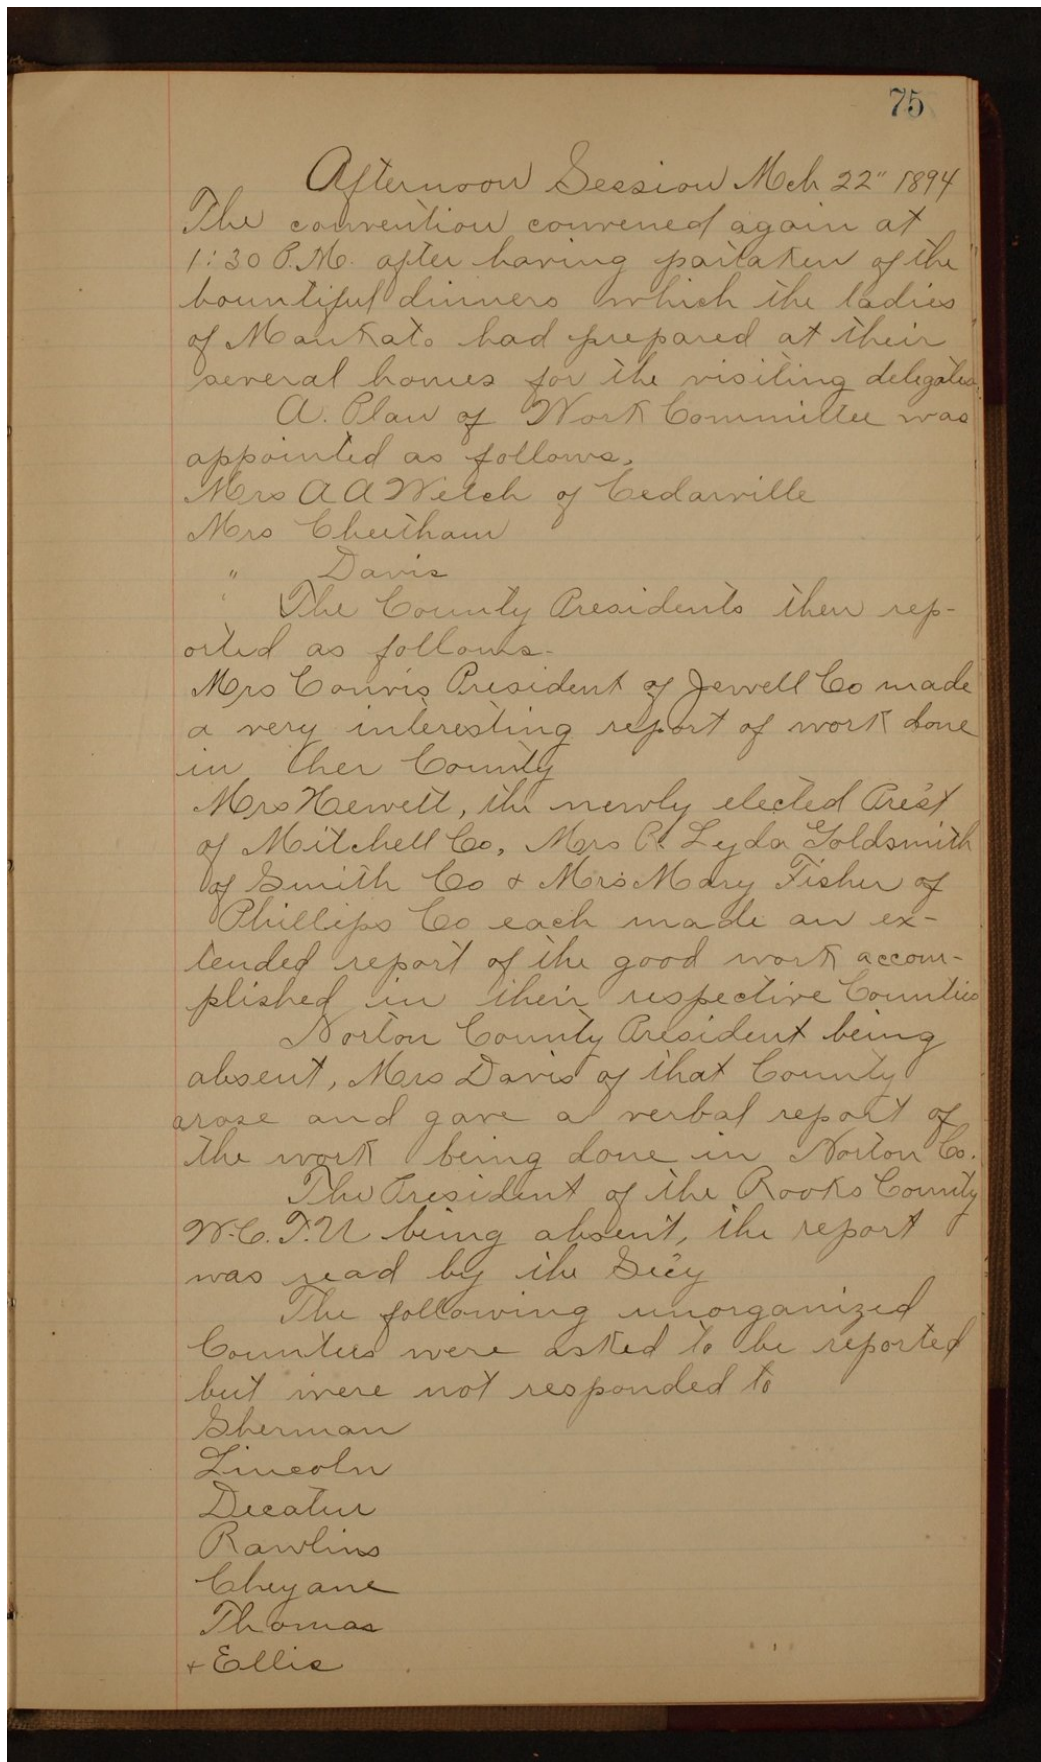 75
Afternoon Session Mch 22" 1894
The convention convened again at
1:30 P.M. after having partaken of the
bountiful dinners which the ladies
of Mankato had prepared at their
several homes for the visiting delegates.
A. Plan of Work Committee was
appointed as follows.
Mrs A A Welch of Cedarville
Mrs Cheetham
" Davis
The County Presidents then rep-
orted as follows-
Mrs Convis President of Jewell Co made
a very interesting report of work done
in her County
Mrs Hewett, the newly elected Pres't
of Mitchell Co, Mrs R. Lyda Goldsmith
of Smith Co & Mrs Mary Fisher of
Phillips Co each made an ex-
tended report of the good work accom-
plished in their respective Counties
Norton County President being
absent, Mrs Davis of that County
arose and gave a verbal report of
the work being done in Norton Co.
The President of the Rooks County
W.C.T.U being absent, the report
was read by the Sec'y
The following unorganized
Counties were asked to be reported
but were not responded to
Sherman
Lincoln
Decatur
Rawlins
Cheyane
Thomas
& Ellis